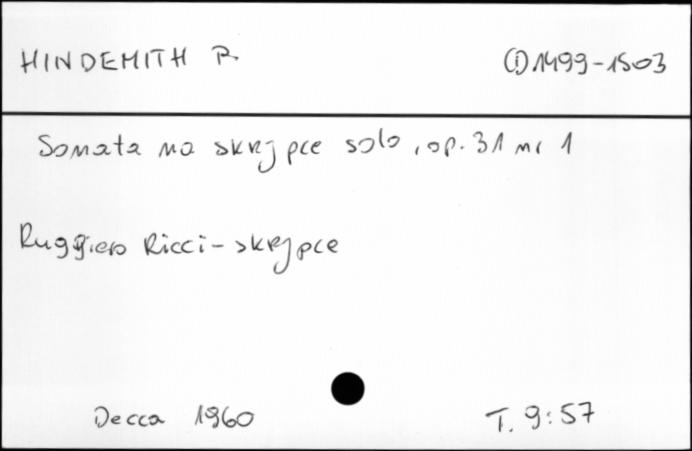 HINDEMITH P.
(I) 1499-1503
Sonata na skrzypce solo, op. 31 nr 1
Ruggiero Ricci - skrzypce
Decca 1960
T. 9:57